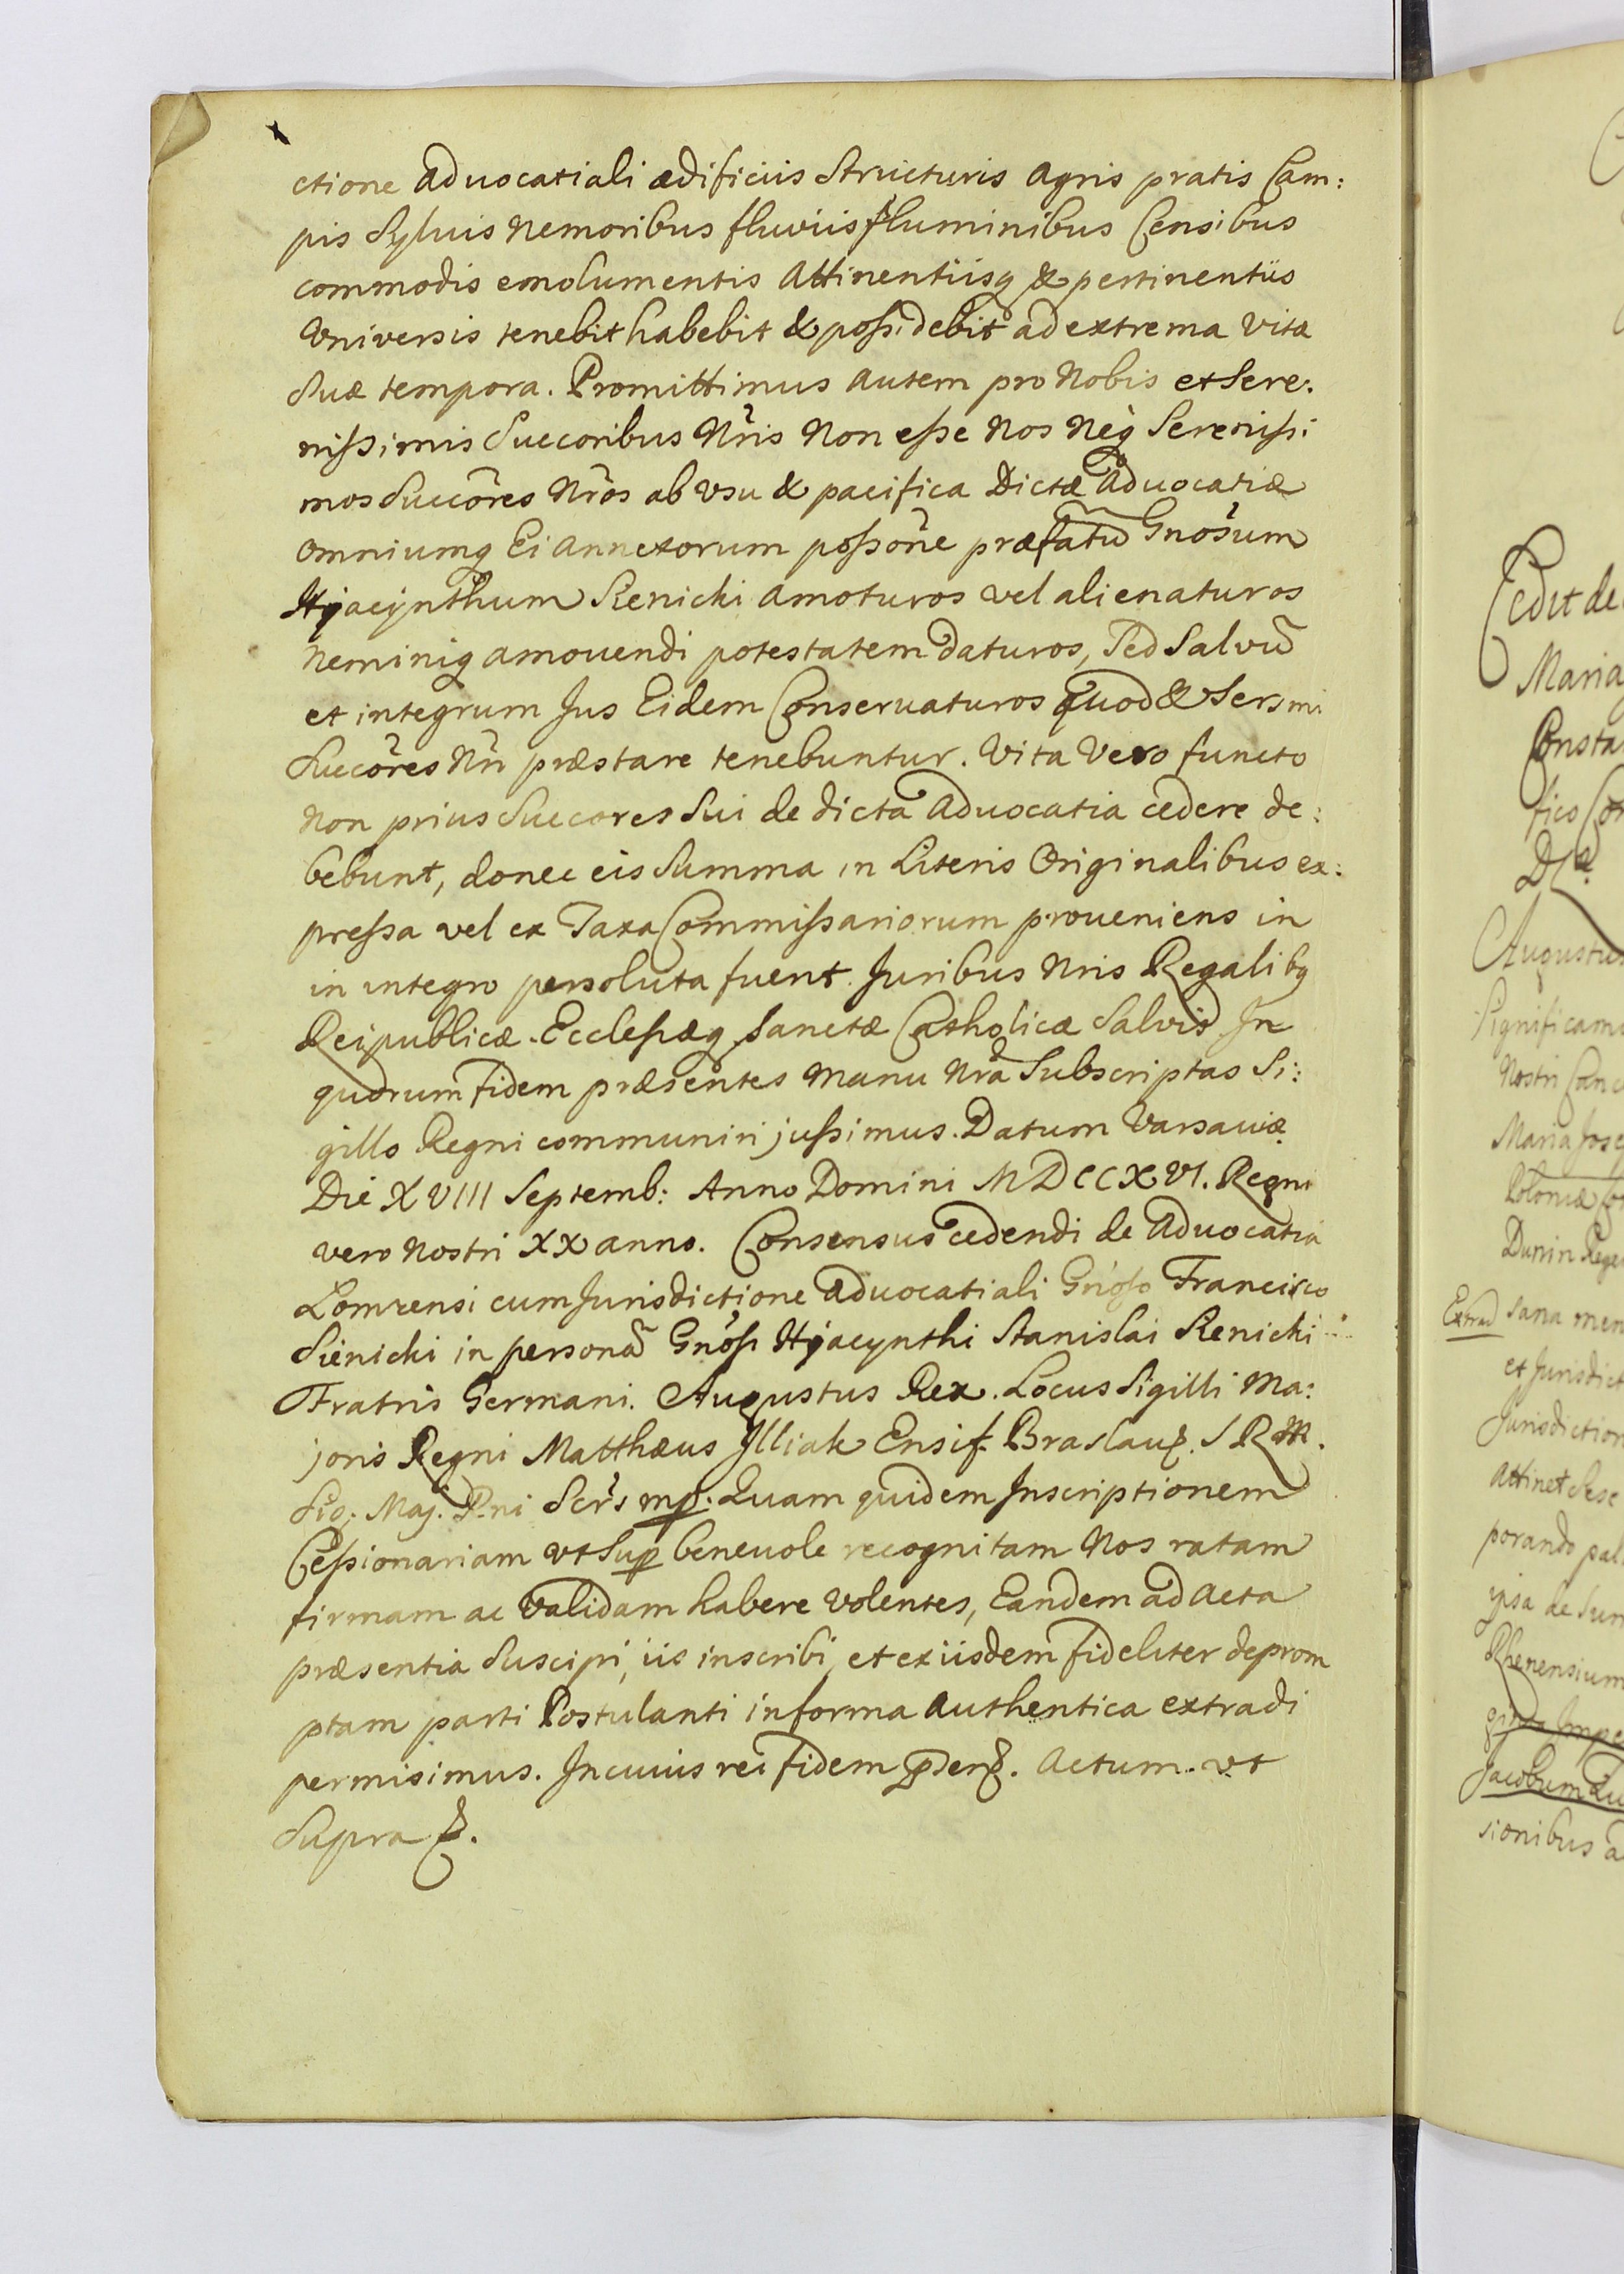 ctione Advocatiali ædificiis Structuris Agris pratis Cam:
pis Sylvis Nemoribus fluviis fluminibus Censibus
commodis emolumentis Attinentiisq & pertinentiis
Universis tenebit habebit & possidebit ad extrema vitæ
Suæ tempora. Promittimus Autem pro Nobis et Sere:
nissimis Succoribus Nris Non esse Nos Neq Serenissi
mos Succores Nros ab vsu & pacifica Dictæ Advocatiæ
Omniumq Ei Annexorum possone præfatu Gnosum
Hyacynthum Sienicki Amoturos vel alienaturos
Neminiq amouendi potestatem daturos, Sed Salvu
et integrum Jus Eidem Conservaturos quod & Sersmi
Succores Nri præstare tenebuntur. Vita Vero functo
Non prius Succores Sui de dicta Advocatia cedere de:
bebunt, donec eis Summa in Literis Originalibus ex:
pressa vel ex Taxa Commissariorum proueniens in
in integro persoluta fuerit. Juribus Nris Regalibq
Reipublicæ. Ecclesiæq Sanctæ Catholicæ Salvis In
quorum fidem præsentes Manu Nra Subscriptas Si:
gillo Regni communiri jussimus. Datum Varsaviæ
Die XVIII Septemb: Anno Domini MDCCXVI. Regni
vero Nostri XX anno. Consensus cedendi de Advocatia
Lomzensi cum Jurisdictione Advocatiali Gnoso Francisco
Sienicki in persona Gnosi Hyacynthi Stanislai Sienicki
Fratris Germani. Augustus Rex. Locus Sigilli Ma:
joris Regni Matthæus Illiak Ensif. Braslau. S R M.
Sig: Maj. Rni Scrs mp. Quam quidem Inscriptionem
Cessionariam vt Sup beneuole recognitam Nos ratam
firmam ac Validam habere Volentes, Eandem ad Acta
præsentia Suscipi, iis inscribi, et ex iisdem fideliter deprom
ptam parti Postulanti in forma Authentica extradi
permisimus. In cuius rei fidem Actum. vt
Supra
Cedit de
Maria
Consta
Augustus
Significam
Nostri Canc
Maria Jose
Poloniæ
Dunin Rege
Extrad Sana men
et Jurisdict
Jurisdiction
Attinet Sese
porando pal
ipsa de Sum
Rhenensium
Jacobum
sionibus a